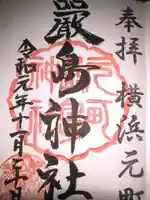 奉拝 横浜元町
嚴島神社
令和元年十一月二十日